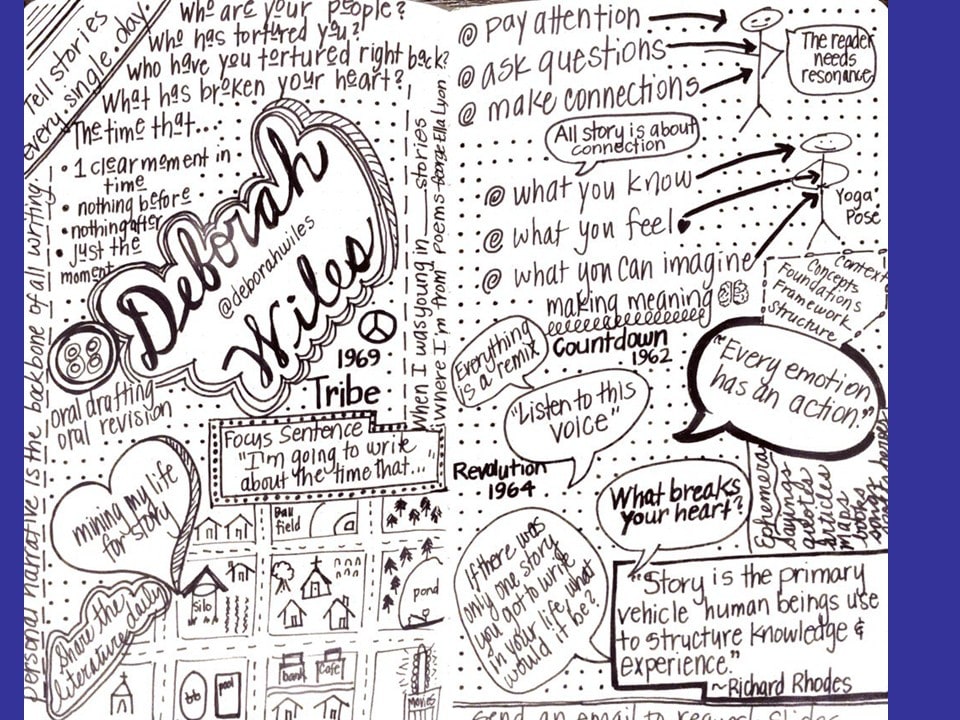 Tell stories
every single day.
Who are your people?
Who has tortured you?!
Who have you tortured right back?
What has broken your heart?
The time that...
• 1 clear moment in
time
• nothing before
• nothing after
• just the
moment
Personal narrative is the backbone of all writing
Deborah
@deborahwiles
Wiles
1969
Tribe
oral drafting
oral revision
Focus Sentence
"I'm going to write
about the time that..."
mining my life
for story
Share the
literature daily
When I was young in ____ stories
Where I'm from poems George Ella Lyon
Ball
field
Silo
pond
bank
cafe
pool
Movies
@ pay attention
@ ask questions
@ make connections
The reader
needs
resonance
All story is about
connection
@ what you know
@ what you feel
@ what you can imagine
making meaning
Yoga
Pose
Context
Concepts
Foundations
Framework
Structure
Everything
is a remix
Countdown
1962
"Listen to this
voice"
"Every emotion
has an action."
Revolution
1964
What breaks
your heart?
Ephemera
sayings
quotes
articles
maps
books
songs
If there was
only one story
you got to write
in your life what
would it be?
"Story is the primary
vehicle human beings use
to structure knowledge &
experience."
~Richard Rhodes
send an email to request slides